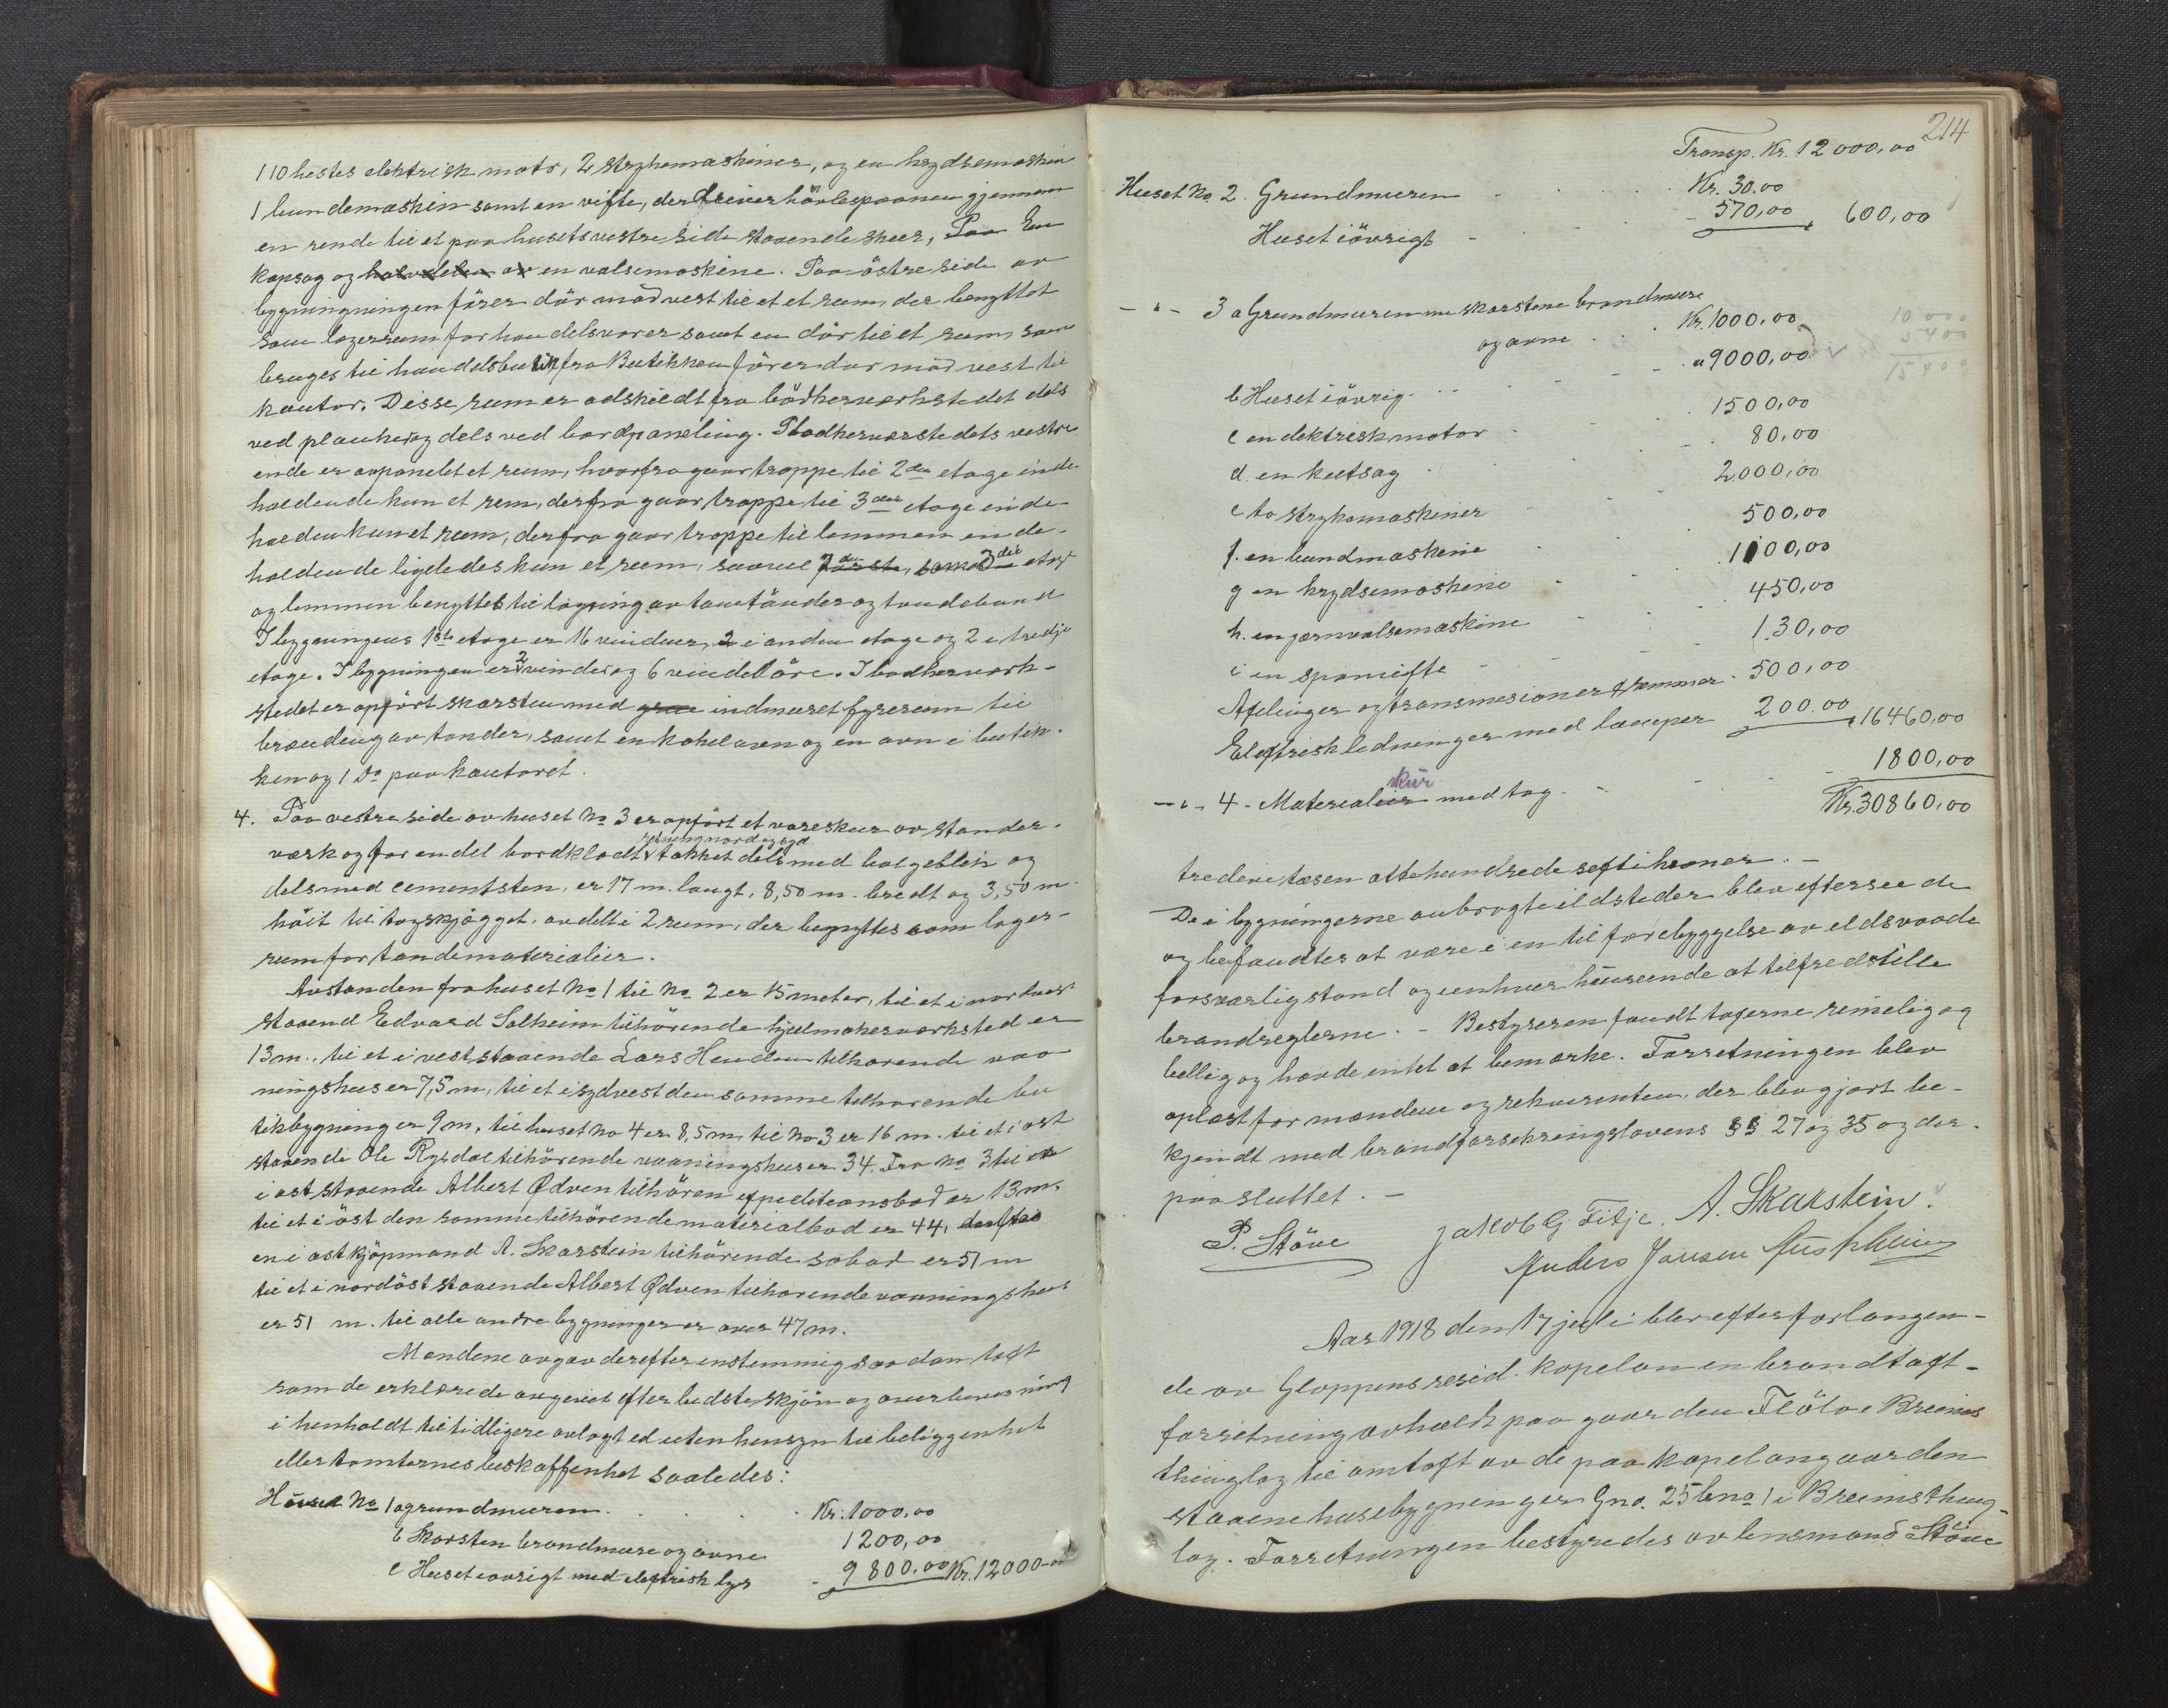 1 10 hestes elektrisk motor, 2 strykemaskiner, og en krydsemaskin
1 bundemaskin samt en vifte, der driver hövlesponen gjennem
en rende til et paa husets vestre side staaende skur, Paa En
kapsag og halvdelen av en valsemaskine. Paa östre side av
bygningningen förer dör mod vest til et et rum, der benyttet
som lagerrum for handelsvarer samt en dör til et rum som
bruges til handelsbutik fra Butikken förer dör mod vest til
kontor. Disse rum er adskildt fra bödkerverkstedet dels
ved planker og dels ved bordpaneling. I bødkerverstedets vestre
ende er avpanelet et rum, hvorfra gaar trappe til 2den etage inde-
holdende kun et rum, derfra gaar trappe til 3die etage inde-
holden kun et rum, derfra gaar trappe til lemmen inde-
holdende ligeledes kun et rum, saavel første, 2den som 3die etage
og lemmen benyttes til lagring av tomtönder og tøndebaand
I bygningens 1ste etage er 16 vinduer, 2 i anden etage og 2 i tredje
etage. I bygningen er 2 vinder og 6 vindelöre. I bødkerverk-
stedet er opført skorsten med indmuret fyrerum til
brænding av tønder, samt en kokeloven og en ovn i butik-
ken og 1 do paa kontoret.
4. Paa vestre side av huset No 3 er opført et vareskur av stander-
retning nord og syd
verk og for en del bordklædt takket dels med bølgeblik og
dels med cementsten, er 17 m. langt, 8,50 m. bredt og 3,50 m.
høit til tagskjægget, avdelt i 2 rum, der benyttes som lager-
rum for tøndematerialier.
Avstanden fra huset No 1 til No 2 er 15 meter, til et i nordvest
staaend Edvard Solheim tilhörende hjulmakerverksted er
13 m., til et i vest staaende Lars Henden tilhørende vaa-
ningshus er 7,5 m, til et i sydvest den samme tilhørende bu
tikbygning er 9 m, til huset No 4 er 8,5 m til No 3 er 16 m. til et i øst
staaende Ole Rygdal tilhörende vaaningshus er 34. Fra No 3 til en
i øst staaende Albert Ødven tilhören expeditionsbod er 13 m.
til et i öst den samme tilhörende materialbod er 44,
en i øst kjöpmand A. Skarstein tilhörende søbod er 51 m
til et i nordöst staaende Albert Ødven tilhørende vaaningshus
er 51 m. til alle andre bygninger er over 47 m.
Mændene avgav derefter enstemmig saadan takst
som de erklærede avgivet efter bedste skjön og overbevisning
i henholdt til tidligere avlagt ed uten hensyn til beliggenhet
eller tomternes beskaffenhet saaledes:
Huset No 1 a grundmuren. Kr. 1000,00
b Skorsten brandmure og ovne 1200,00
c Huset iøvrigt med elektrisk lys - 9 800,00 Kr. 12000-00
214
Transp. Kr. 12 000,00
Huset No. 2. Grundmuren Kr. 30.00
Huset iövrigt - 570,00 , 600,00
- " - 3 a Grundmuren m skorstene brandmure
og ovne Kr. 1000,00
b Huset iövrig. " 9000,00
10 000
5400
15400
c en elektrisk motor 1500,00
d. en kutsag 80,00
e to strykemaskiner 2.000,00
f. en bundmaskine 500,00
g en krydsemaskine 1100,00
h. en jernvalsemaskine 450,00
i en sponvifte 130,00
Axlinger og transmesioner & remmer 500,00
Elektrisk ledninger med lamper 200.00 , 16460,00
- " - 4 - Materialier skur med tag 1800,00
Kr. 30860,00
tredivetusen ottehundrede sexti kroner. -
De i bygningerne anbragte ildsteder blev efterseede
og befandtes at være i en til forebyggelse av ildsvaade
forsvarlig stand og i enhver henseende at tilfredstille
brandreglerne. - Bestyreren fandt taxterne rimelig og
billig og havde intet at bemærke. Forretningen blev
oplæst for mændene og rekvirenten, der blev gjort be-
kjendt med brandforsekringslovens §§ 27 og 35 og der-
paa sluttet. -
P. Stöve Jakob G Fitje. A. Skarstein.
Anders Jonsen Austrheim
Aar 1918 den 17 juli blev efter forlangen-
de av Gloppens resid. kapelan en brandtaxt-
forretning avholdt paa gaarden Flöto i Breims
thinglag til omtaxt av de paa kapelangaarden
staaene husebygninger Gno. 25 bno 1 i Breims thing-
lag. Forretningen bestyredes av lensmand Stöve